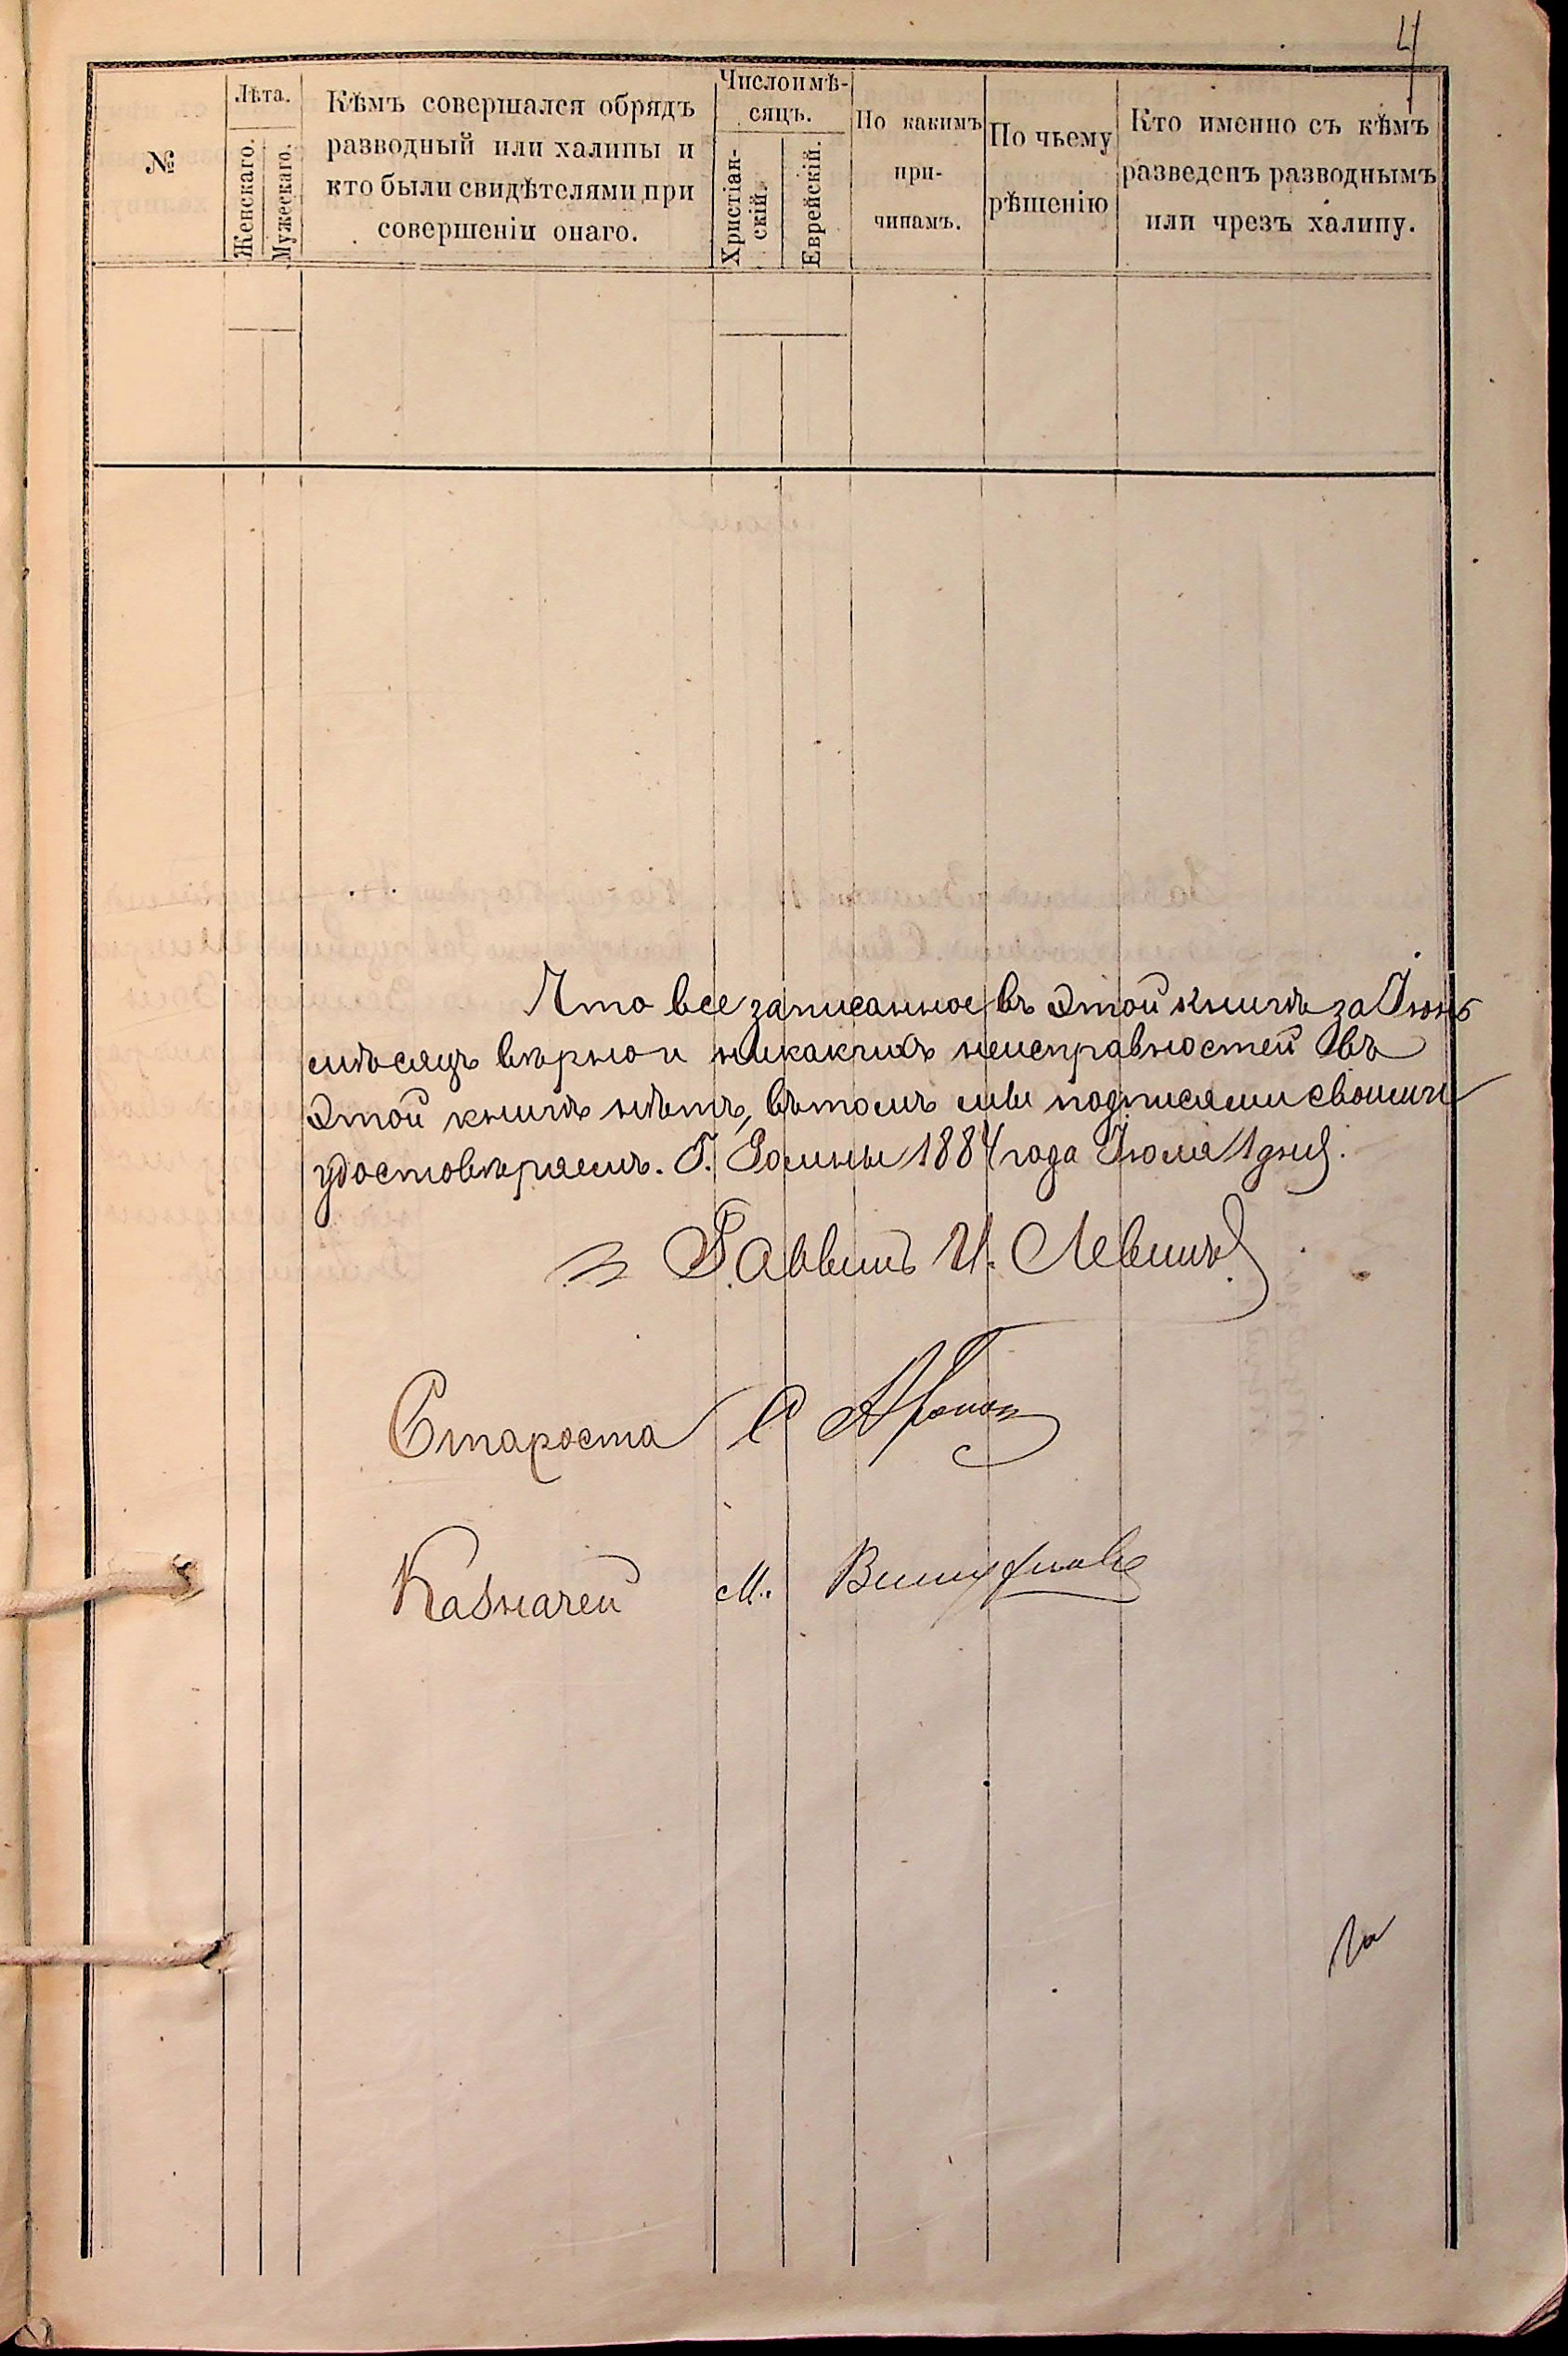 4
№
Лѣта.
Женскаго.
Мужескаго.
Кѣмъ совершался обрядъ
разводный или халицы и
кто были свидѣтелями при
совершеніи онаго.
Число и мѣ-
сяцъ.
Христіан-
скій.
Еврейскій.
По какимъ
при-
чинамъ.
По чьему
рѣшенію
Кто именно съ кѣмъ
разведенъ разводнымъ
или чрезъ халицу.
Что все записанное въ этой книгѣ за Іюнь
мѣсяцъ вѣрно и никакихъ неисправностей въ
этой книгѣ нѣтъ, въ томъ мы подписями своими
удостовѣряемъ. Г. Ромны 1884 года Іюля 1 дня.
Раввинъ И. Левинъ
Староста
Казначей М.